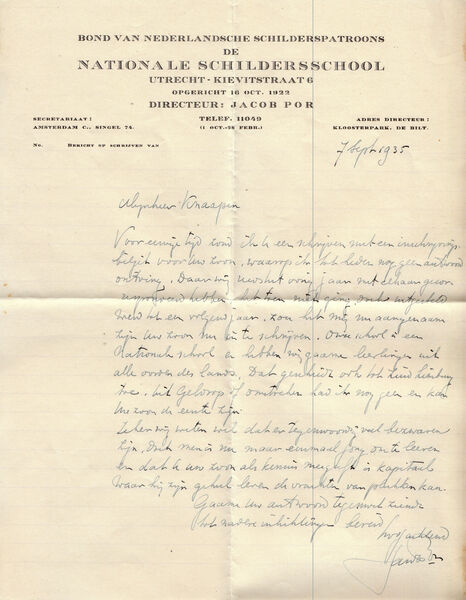 BOND VAN NEDERLANDSCHE SCHILDERSPATROONS
DE
NATIONALE SCHILDERSSCHOOL
UTRECHT - KIEVITSTRAAT 6
OPGERICHT 16 OCT. 1922
DIRECTEUR: JACOB POR
SECRETARIAAT:
AMSTERDAM C., SINGEL 74.
TELEF. 11049
(1 OCT.-28 FEBR.)
ADRES DIRECTEUR:
KLOOSTERPARK, DE BILT.
No. BERICHT OP SCHRIJVEN VAN
7 Sept 1935
Mijnheer Knaapen
Voor eenige tijd zond ik U een schrijven met een inschrijvings
biljet voor Uw zoon, waarop ik tot heden nog geen antwoord
ontving. Daar wij
het toen niet ging, en het uitgesteld
werd tot een volgend jaar, zou het mij nu aangenaam
zijn Uw zoon nu in te schrijven. Onze school is een
Nationale school en hebben wij gaarne leerlingen uit
alle oorden des lands. Dat geschiedt ook tot Zuid Limburg
toe. Uit Geldrop of omstreken had ik nog geen en kan
Uw zoon de eerste zijn.
Zeker wij weten wel dat er tegenwoordig veel bezwaren
zijn, doch men is nu maar eenmaal jong om te leeren
en dat U Uw zoon als kennis meegeeft is kapitaal
waar hij zijn geheel leven de vruchten van plukken kan.
Gaarne Uw antwoord tegemoet ziende
tot nadere inlichtingen bereid
Hoogachtend
Jacob Por